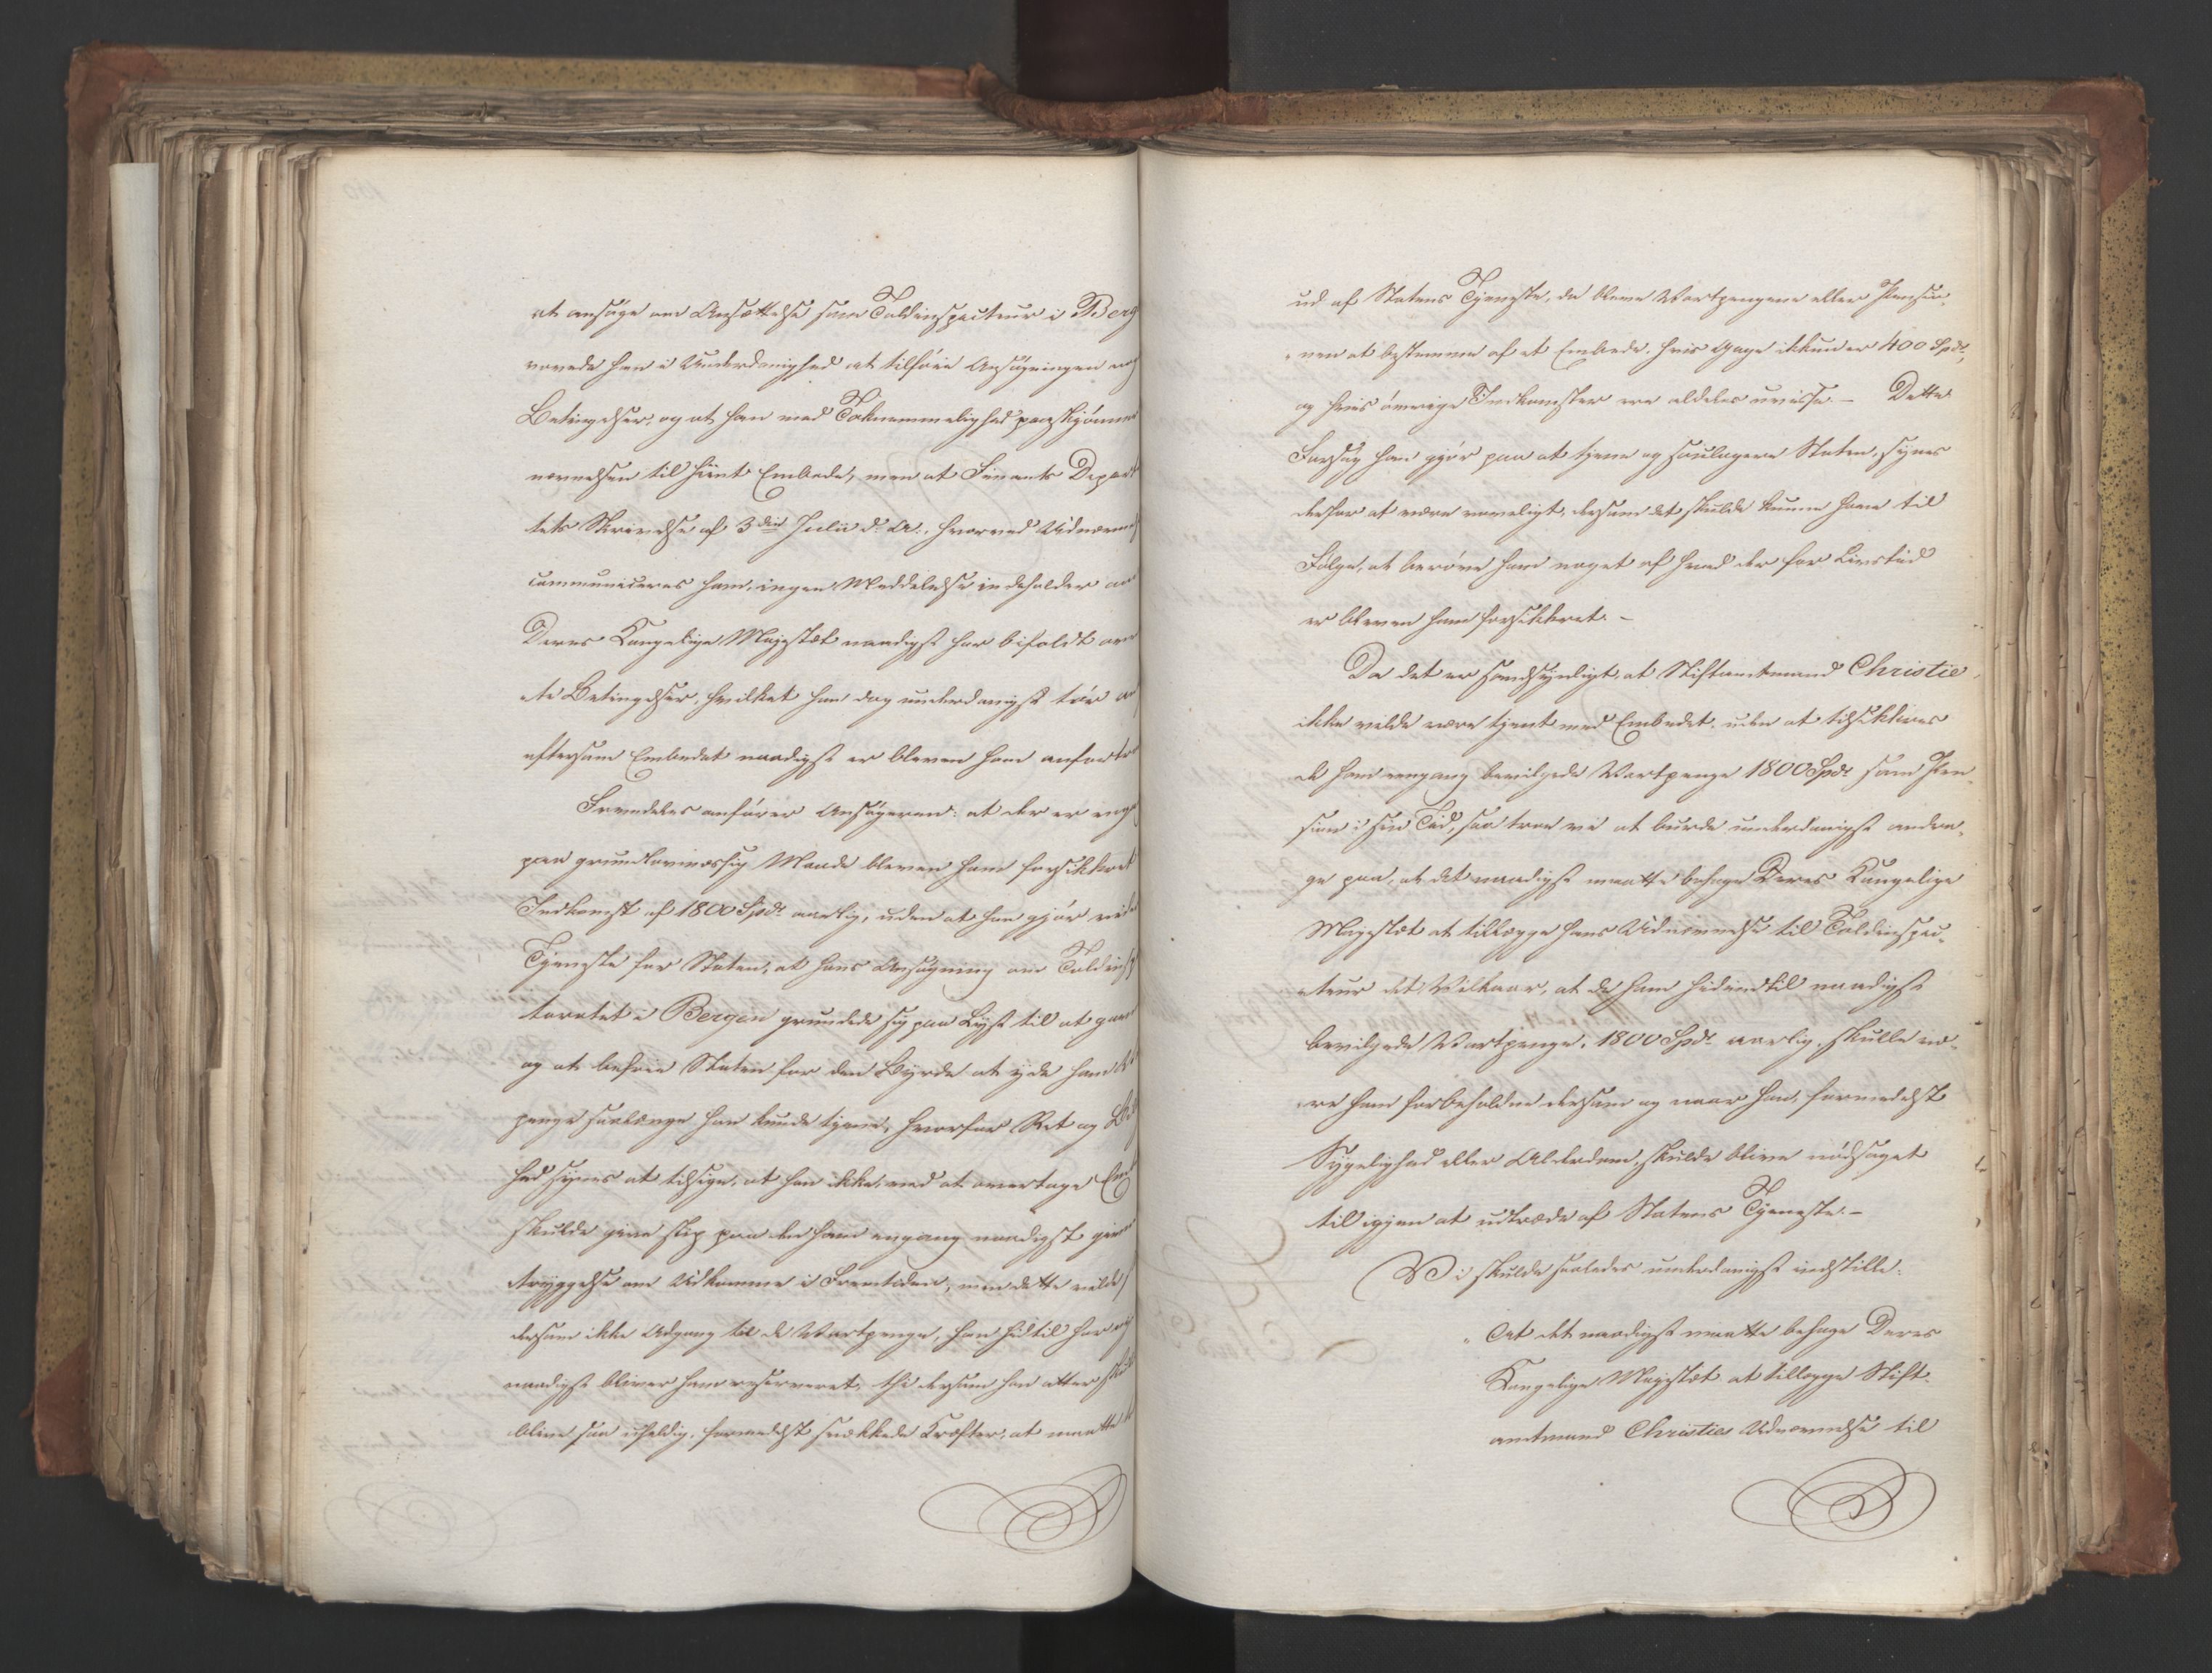 at ansøge om Ansættelse som Toldinspecteur i Berg
vovede han i Underdanighed at tilføie Ansøgningen
Betingelser, og at han med Taknemmelighed paaskjønner
nævnelsen til hiint Embede, men at Finants Depart
tets Skrivelse af 3die Julii d. A., hvorved Udnævnel
communiceres ham, ingen Meddelelse indeholder om
Deres Kongelige Majestæt naadigst har bifaldt
te Betingelser, hvilket han dog underdanigst tør
eftersom Embedet naadigst er bleven ham anfortro
Fremdeles anfører Ansøgeren: at der er
paa grundlovmæssig Maade bleven ham forsikkret
Indkomst af 1800 Spd. aarlig, uden at han gjør
Tjeneste for Staten, at hans Ansøgning om Toldinsp
toratet i Bergen grundede sig paa Lyst til at gavn
og at befrie Staten for den Byrde at yde ham
penge saalænge han kunde tjene, hvorfor Ret og Bil
hed synes at tilsige, at han ikke, ved at overtage Em
skulde give slip paa den ham engang naadigst givne
Tryggelse om Udkomme i Fremtiden, men dette vilde
dersom ikke Adgang til de Vartpenge, han hidtil har
naadigst bliver ham reserveret, thi dersom han atter sku
blive saa uheldig, formedelst svækkede Kræfter, at maatte
ud af Statens Tjeneste, da bleve Vartpengene eller Pensio-
nen at bestemme af et Embede, hvis Gage ikkun er 400 Spd.,
og hvis øvrige Indkomster ere aldeles uvisse. – Dette
Forsøg han gjør paa at tjene og soulagere Staten, synes
derfor at være voveligt, dersom det skulde kunne have til
Følge, at berøve ham noget af hvad der for Livstid
er bleven ham forsikkret. –
Da det er sandsynligt, at Stiftamtmand Christie,
ikke vilde være tjent med Embedet, uden at tilsikkres
de ham eengang bevilgede Vartpenge 1800 Spd. som Pen-
sion i sin Tid, saa troe vi at burde underdanigst andra-
ge paa, at det naadigst maatte behage Deres Kongelige
Majestæt at tillægge hans Udnævnelse til Toldinspec-
teur det Vilkaar, at de ham hidindtil naadigst
bevilgede Vartpenge, 1800 Spd. aarlig, skulle væ-
re ham forbeholdne dersom og naar han, formedelst
Sygelighed eller Alderdom, skulde blive nødsaget
til igjen at udtræde af Statens Tjeneste. –
Vi skulde saaledes underdanigst indstille:
"At det naadigst maatte behage Deres
Kongelige Majestæt at tillægge Stift-
amtmand Christies Udnævnelse til